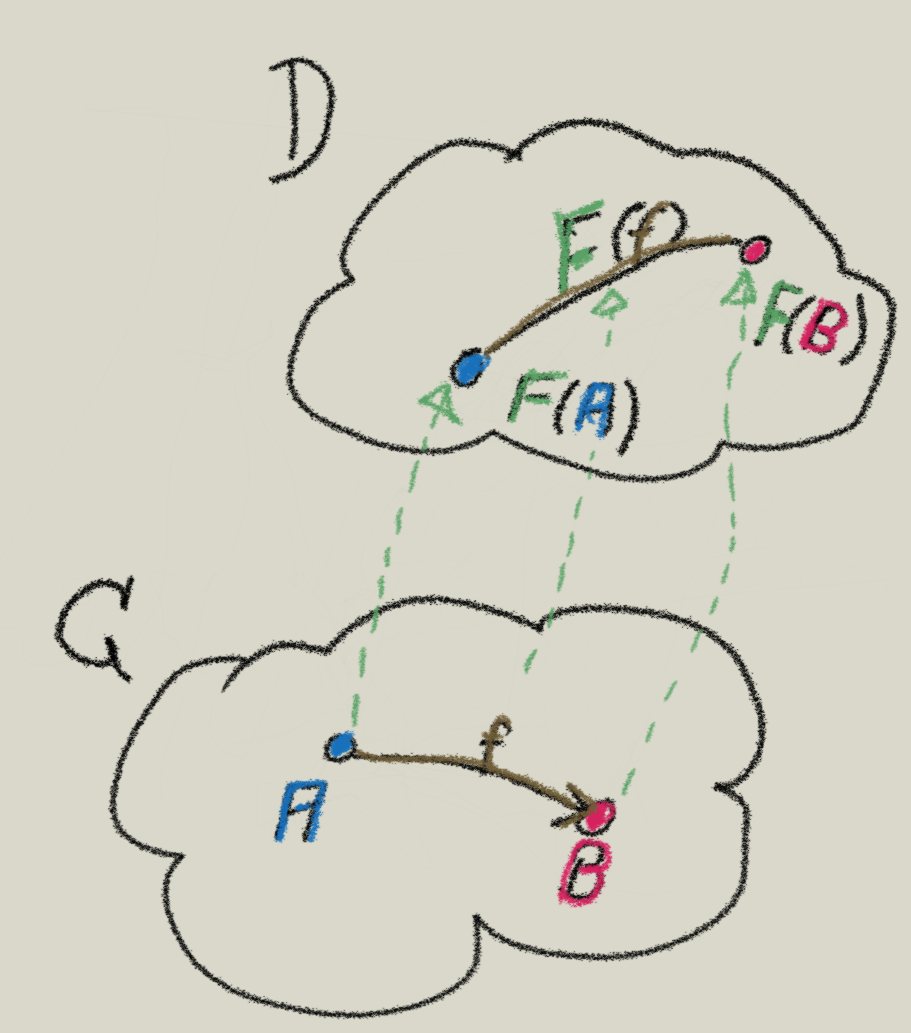 D
F(f)
F(B)
F(A)
C
f
A
B